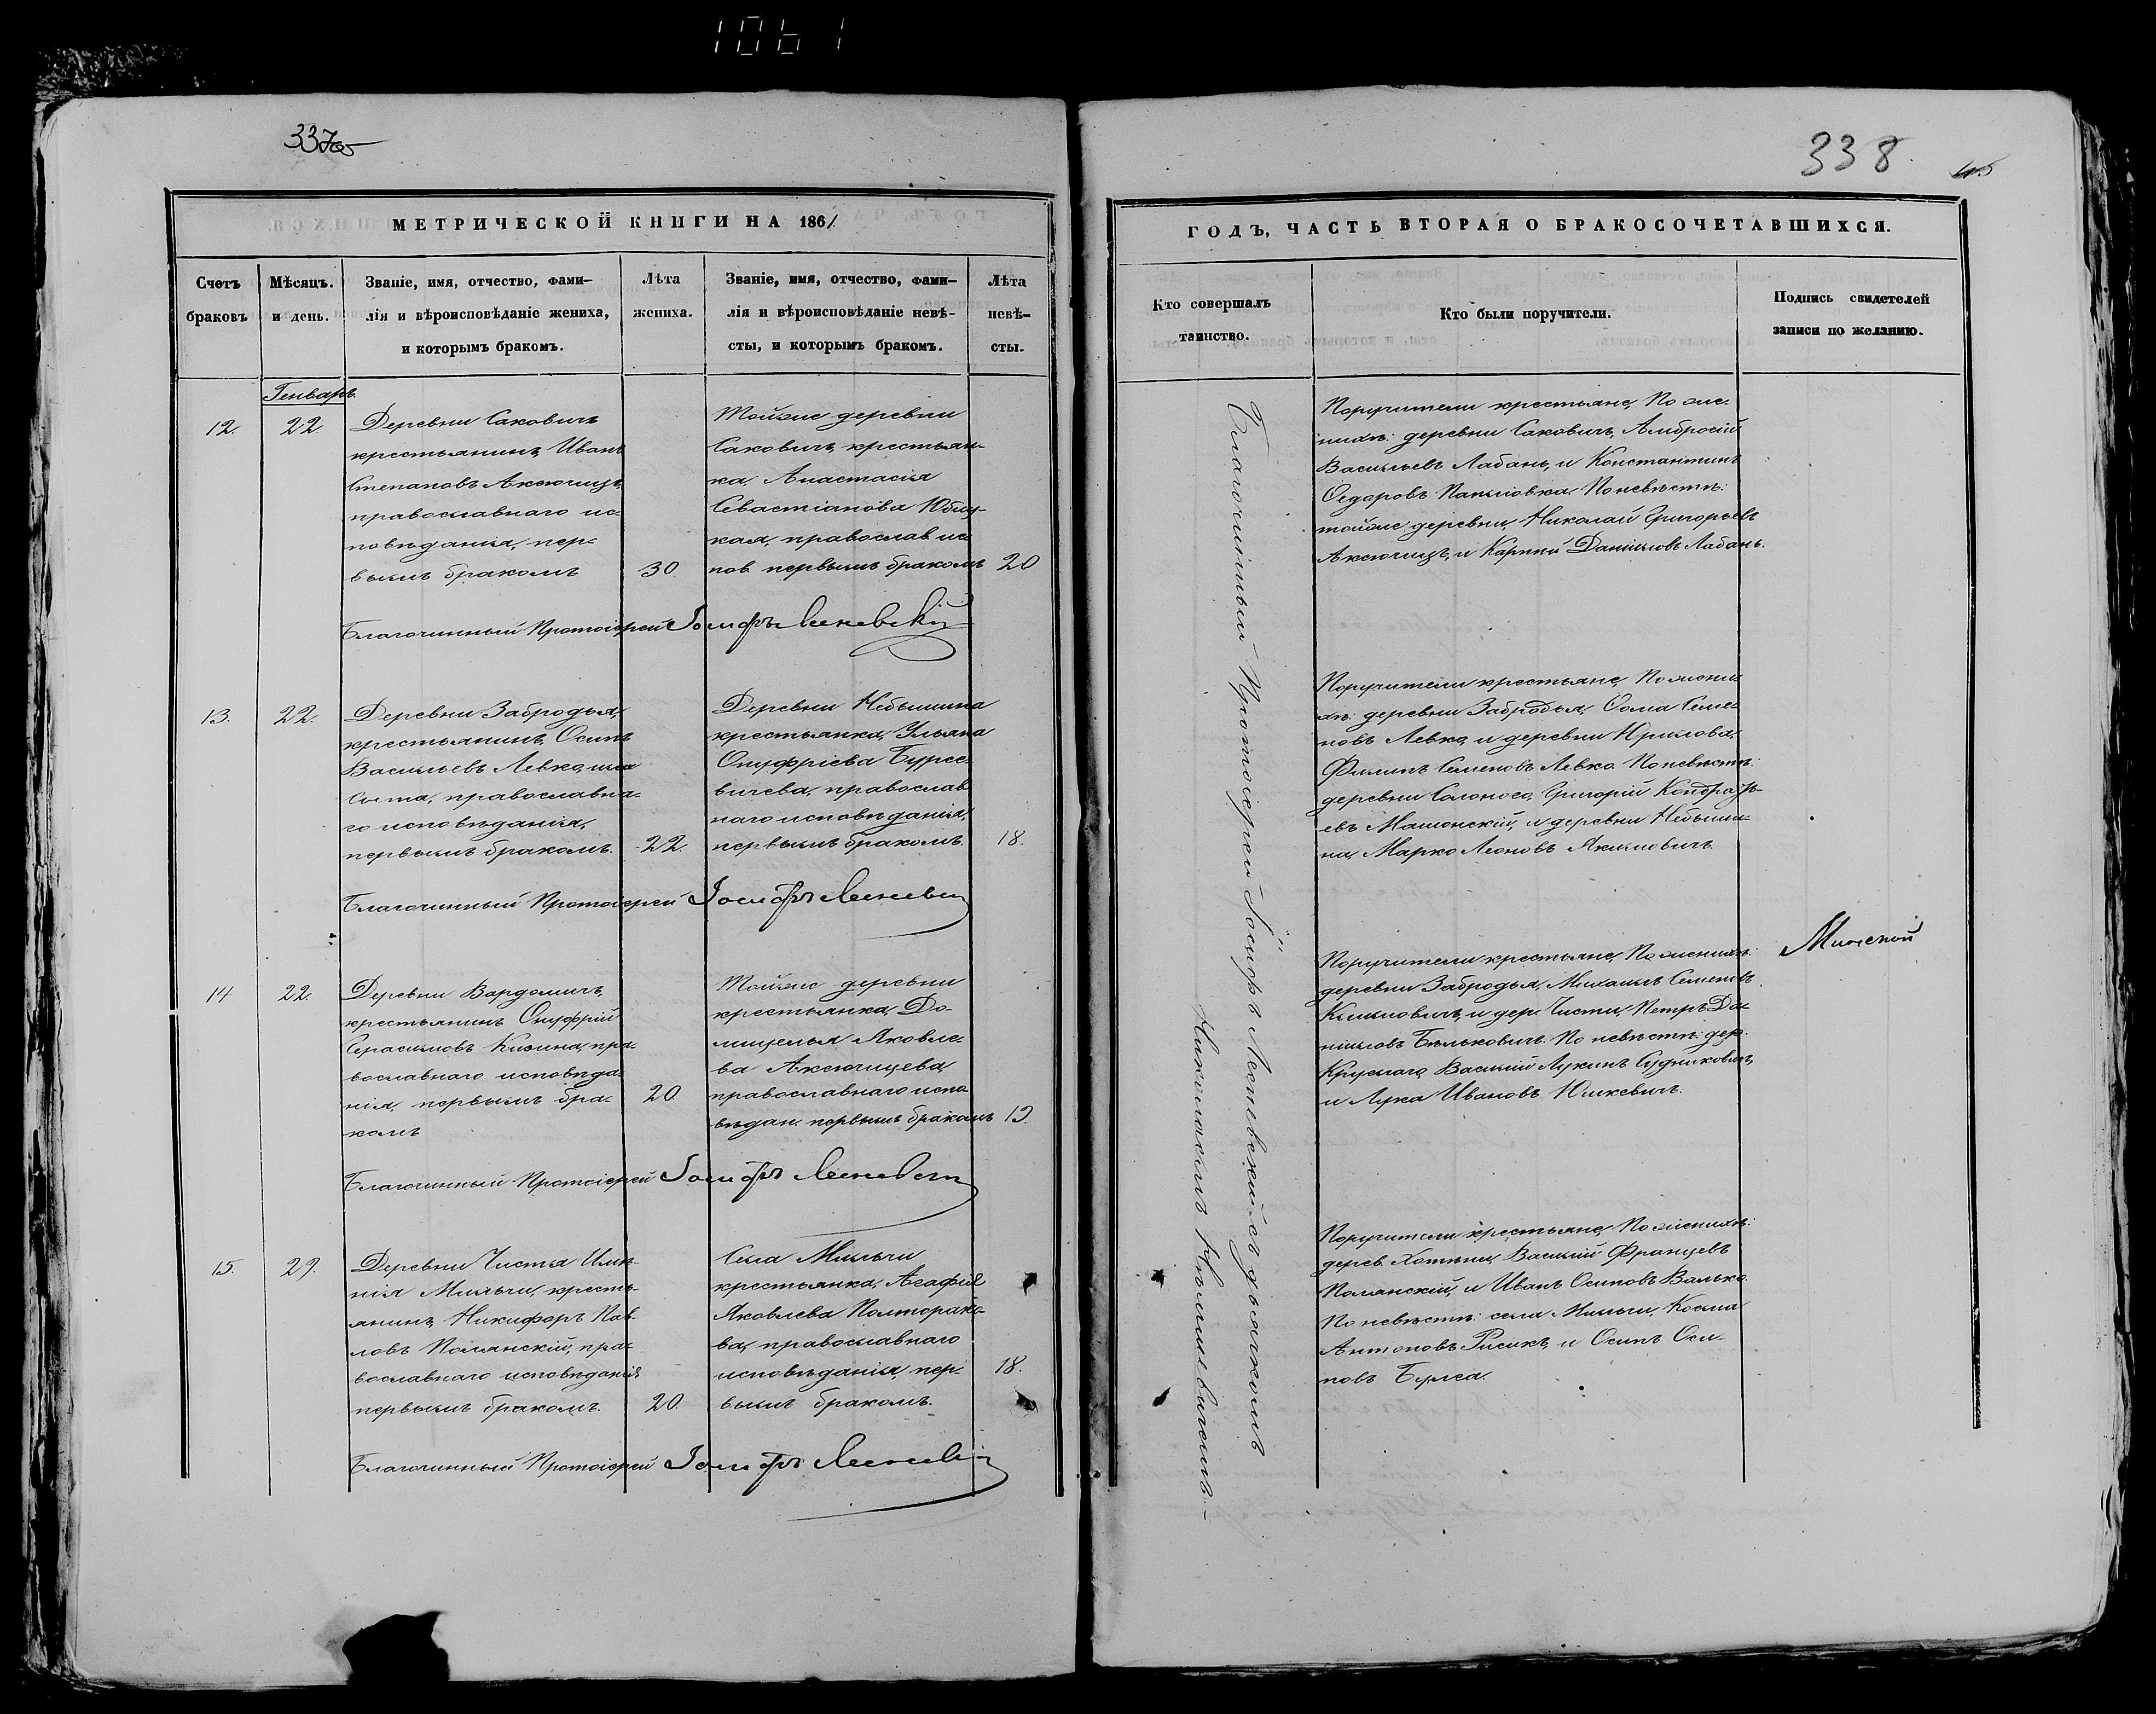 1061
337об
338
МЕТРИЧЕСКОЙ КНИГИ НА 1861
Счетъ браковъ
Мѣсяцъ. и день.
Званіе, имя, отчество, фами-
лія и вѣроисповѣданіе жениха,
и которымъ бракомъ.
Лѣта
жениха.
Званіе, имя, отчество, фами-
лія и вѣроисповѣданіе невѣ-
сты, и которымъ бракомъ.
Лѣта
невѣ-
сты.
Генварь
12.
22.
Деревни Саковичъ
крестьянинъ, Иванъ
Степановъ Аксючицъ,
православнаго ис-
повѣданія, пер-
вымъ бракомъ
30.
Тойже деревни
Саковичъ, крестьян-
ка, Анастасія
Севастіанова
кая, православ. ис-
пов. первымъ бракомъ
20
Благочинный Протоіерей Іосифъ
13.
22.
Деревни Забродья,
крестьянинъ, Осипъ
Васильевъ Левко,
православна-
го исповѣданія,
первымъ бракомъ.
22.
Деревни Небышина
крестьянка, Ульяна
Онуфріева Бурсе-
вичева, православ
наго исповѣданія,
первымъ бракомъ.
18.
Благочинный Протоіерей Іосифъ
14
22.
Деревни Вардомичъ,
крестьянинъ Онуфрій
Герасимовъ Кизина, пра-
вославнаго исповѣда-
нія, первымъ бра-
комъ
20.
Тойже деревни
крестьянка, До-
мицелья Яковле-
ва Аксючицева,
православнаго испо-
вѣдан. первымъ бракомъ
19.
Благочинный Протоіерей Іосифъ
15.
29.
Деревни Чистья Имѣ-
нія Мильчи, кресть-
янинъ, Никифоръ Пав-
ловъ Полянскій, пра-
вославнаго исповѣданія
первымъ бракомъ.
20.
Села Мильчи
крестьянка, Агафія
Яковлева Полторако-
ва, православнаго
исповѣданія, пер-
вымъ бракомъ.
18.
Благочинный Протоіерей Іосифъ
ГОДЪ, ЧАСТЬ ВТОРАЯ О БРАКОСОЧЕТАВШИХСЯ.
Кто совершалъ
таинство.
Кто были поручители.
Подпись свидетелей
записи по желанію.
Благочинный Протоіерей Іосифъ съ дьячкомъ
Николаемъ
Поручители крестьяне, По же-
нихѣ: деревни Саковичъ, Амбросій
Васильевъ Лабань, и Константинъ
Ѳедоровъ Папловка. По невѣстѣ:
тойже деревни, Николай Григорьевъ
Аксючицъ, и Карпъ Даніиловъ Лабань.
Поручители крестьяне, По жени
хѣ: деревни Забродья, Ѳома Семе-
новъ Левко, и деревни
Филипъ Семеновъ Левко. По невѣстѣ:
деревни Солоного, Григорій Кондрать-
евъ и деревни Небыши-
на, Марко Леоновъ Якимовичъ.
Поручители крестьяне, По женихѣ:
деревни Забродья, Михаилъ Семеновъ
Климовичъ, и дер. Чисти, Петръ Да-
ніиловъ Бѣльковичъ. По невѣстѣ: дер.
Круглаго, Василій Лукинъ Судниковичъ,
и Лука Ивановъ Юшкевичъ.
Поручители крестьяне, По женихѣ:
дерев. Хотѣни, Василій Францевъ
Полянскій, и Иванъ Осиповъ Валько.
По невѣстѣ: села Мильчи, Косьма
Антоновъ Рисикъ, и Осипъ Оси-
повъ
Минской